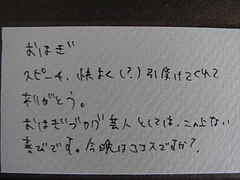 おはぎ
スピーチ、快よく(?)引受けてくれて
ありがとう。
おはぎづかび芸人としては、この上ない
喜びです。今晩はココスですか?